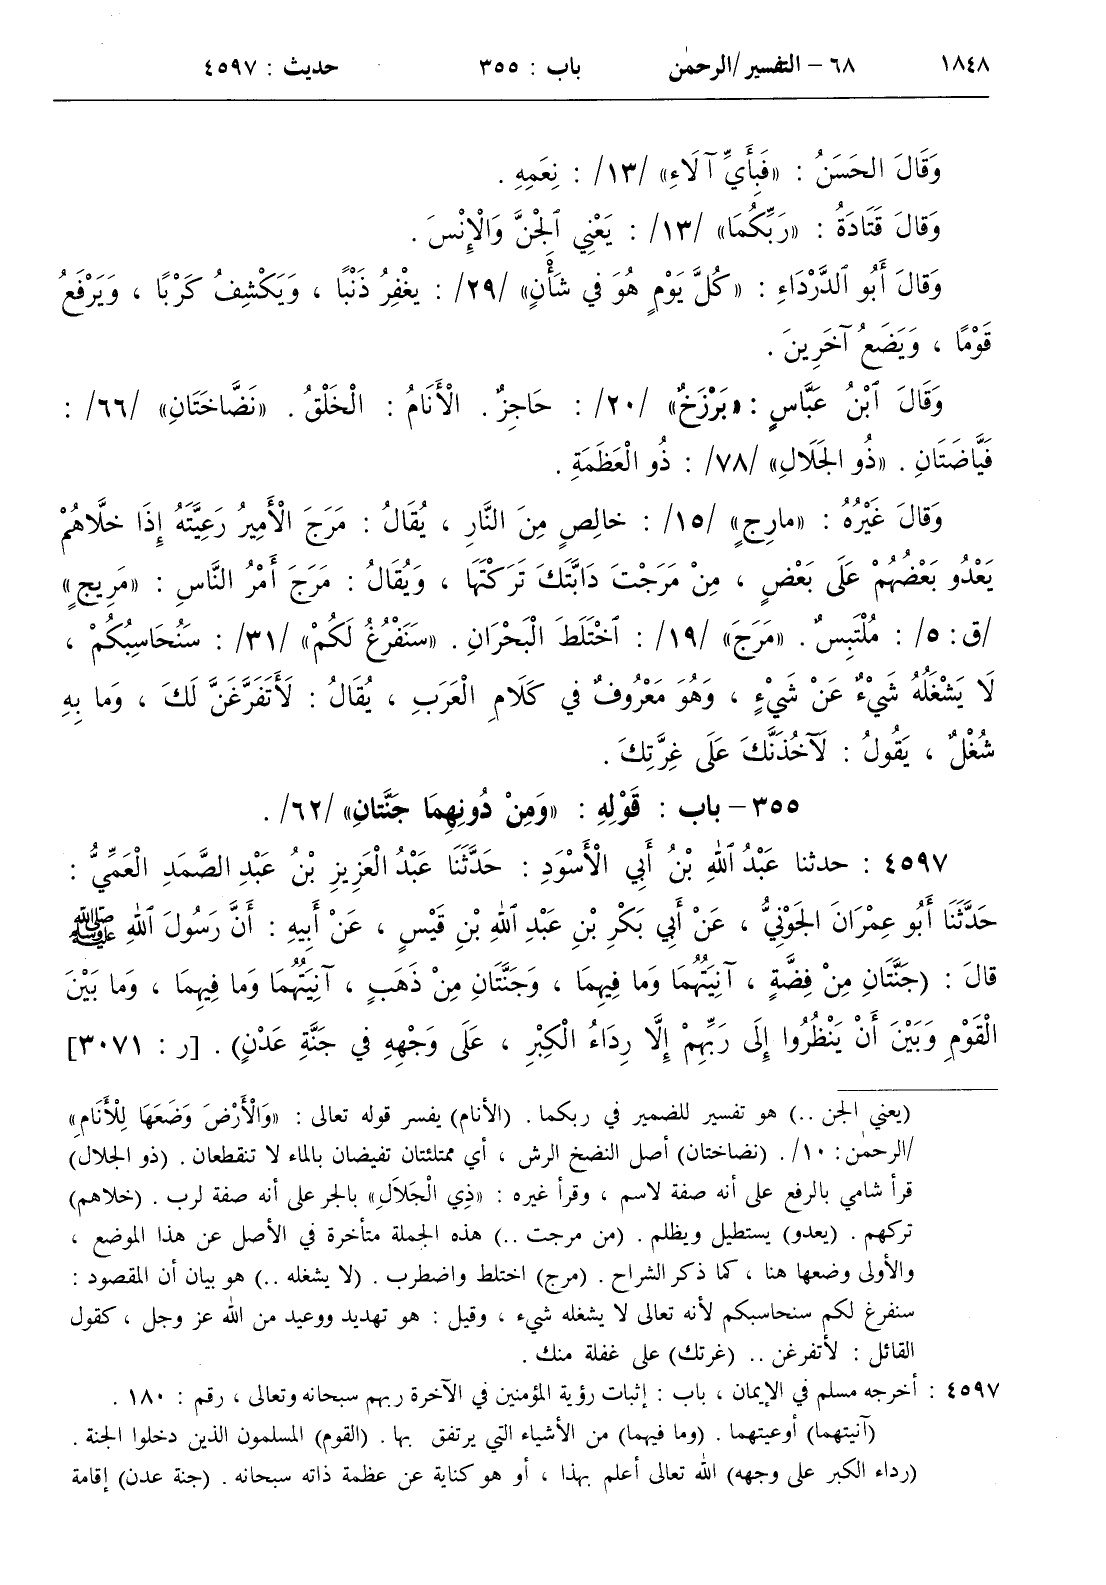 ١٨٤٨ ٦٨ – التفسير/الرحمٰن باب : ٣٥٥ حديث : ٤٥٩٧
وَقَالَ الحَسَنُ : «فَبِأَيِّ آلَاءِ» /١٣/ : نِعَمِهِ .
وَقَالَ قَتَادَةُ : «رَبِّكُمَا» /١٣/ : يَعْنِي ٱلْجِنَّ وَالْإِنْسَ .
وَقَالَ أَبُو ٱلدَّرْدَاءِ : «كُلَّ يَوْمٍ هُوَ فِي شَأْنٍ» /٢٩/ : يغْفِرُ ذَنْبًا ، وَيَكْشِفُ كَرْبًا ، وَيَرْفَعُ
قَوْمًا ، وَيَضَعُ آخَرِينَ .
وَقَالَ ٱبْنُ عَبَّاسٍ : «بَرْزَخٌ» /٢٠/ : حَاجِزٌ. الْأَنَامُ : الْخَلْقُ. «نَضَّاخَتَانِ» /٦٦/ :
فَيَّاضَتَانِ . «ذُو الجَلَالِ» /٧٨/ : ذُو الْعَظَمَةِ .
وَقَالَ غَيْرُهُ : «مارِجٍ» /١٥/ : خالِصٍ مِنَ النَّارِ ، يُقَالُ : مَرَجَ الْأَمِيرُ رَعِيَّتَهُ إِذَا خلَّاهُمْ
يَعْدُو بَعْضُهُمْ عَلَى بَعْضٍ ، مِنْ مَرَجْتَ دَابَّتَكَ تَرَكْتَهَا ، وَيُقَالُ : مَرَجَ أَمْرُ النَّاسِ : «مَرِيجٍ»
/ق: ٥/ : مُلْتَبِسٌ. «مَرَجَ» /١٩/ : ٱخْتَلَطَ الْبَحْرَانِ. «سَنَفْرُغُ لَكُمْ» /٣١/ : سَنُحَاسِبُكُمْ ،
لَا يَشْغَلُهُ شَيْءٌ عَنْ شَيْءٍ ، وَهُوَ مَعْرُوفٌ في كَلَامِ الْعَرَبِ ، يُقَالُ : لَأَتَفَرَّغَنَّ لَكَ ، وَما بِهِ
شُغْلٌ ، يَقُولُ : لَآخُذَنَّكَ عَلَى غِرَّتِكَ .
٣٥٥ – باب : قَوْلِهِ : «وَمِنْ دُونِهِمَا جَنَّتانِ» /٦٢/ .
٤٥٩٧ : حدثنا عَبْدُ ٱللهِ بْنُ أَبِي الْأَسْوَدِ : حَدَّثَنَا عَبْدُ الْعَزِيزِ بْنُ عَبْدِ الصَّمَدِ الْعَمِّيُّ :
حَدَّثَنَا أَبُو عِمْرَانَ الجَوْنِيُّ ، عَنْ أَبِي بَكْرِ بْنِ عَبْدِ ٱللهِ بْنِ قَيْسٍ ، عَنْ أَبِيهِ : أَنَّ رَسُولَ ٱللهِ ﷺ
قالَ : (جَنَّتَانِ مِنْ فِضَّةٍ ، آنِيَتُهُمَا وَما فِيهِمَا ، وَجَنَّتَانِ مِنْ ذَهَبٍ ، آنِيَتُهُمَا وَما فِيهِمَا ، وَما بَيْنَ
الْقَوْمِ وَبَيْنَ أَنْ يَنْظُرُوا إِلَى رَبِّهِمْ إِلَّا رِدَاءُ الْكِبْرِ ، عَلَى وَجْهِهِ في جَنَّةِ عَدْنٍ) . [ر : ٣٠٧١]
(يعني الجن ..) هو تفسير للضمير في ربكما. (الأنام) يفسر قوله تعالى : «وَالْأَرْضَ وَضَعَهَا لِلْأَنَامِ»
/الرحمٰن: ١٠/. (نضاختان) أصل النضخ الرش ، أي ممتلئتان تفيضان بالماء لا تنقطعان. (ذو الجلال)
قرأ شامي بالرفع على أنه صفة لاسم ، وقرأ غيره : «ذِي الْجَلَالِ» بالجر على أنه صفة لرب. (خلاهم)
تركهم . (يعدو) يستطيل ويظلم . (من مرجت ..) هذه الجملة متأخرة في الأصل عن هذا الموضع ،
والأولى وضعها هنا ، كما ذكر الشراح. (مرج) اختلط واضطرب . (لا يشغله ..) هو بيان أن المقصود :
سنفرغ لكم سنحاسبكم لأنه تعالى لا يشغله شيء ، وقيل : هو تهديد ووعيد من الله عز وجل ، كقول
القائل : لأتفرغن .. (غرتك) على غفلة منك .
٤٥٩٧ : أخرجه مسلم في الإيمان ، باب : إثبات رؤية المؤمنين في الآخرة ربهم سبحانه وتعالى ، رقم : ١٨٠ .
(آنيتهما) أوعيتهما . (وما فيهما) من الأشياء التي يرتفق بها . (القوم) المسلمون الذين دخلوا الجنة .
(رداء الكبر على وجهه) الله تعالى أعلم بهذا ، أو هو كناية عن عظمة ذاته سبحانه . (جنة عدن) إقامة